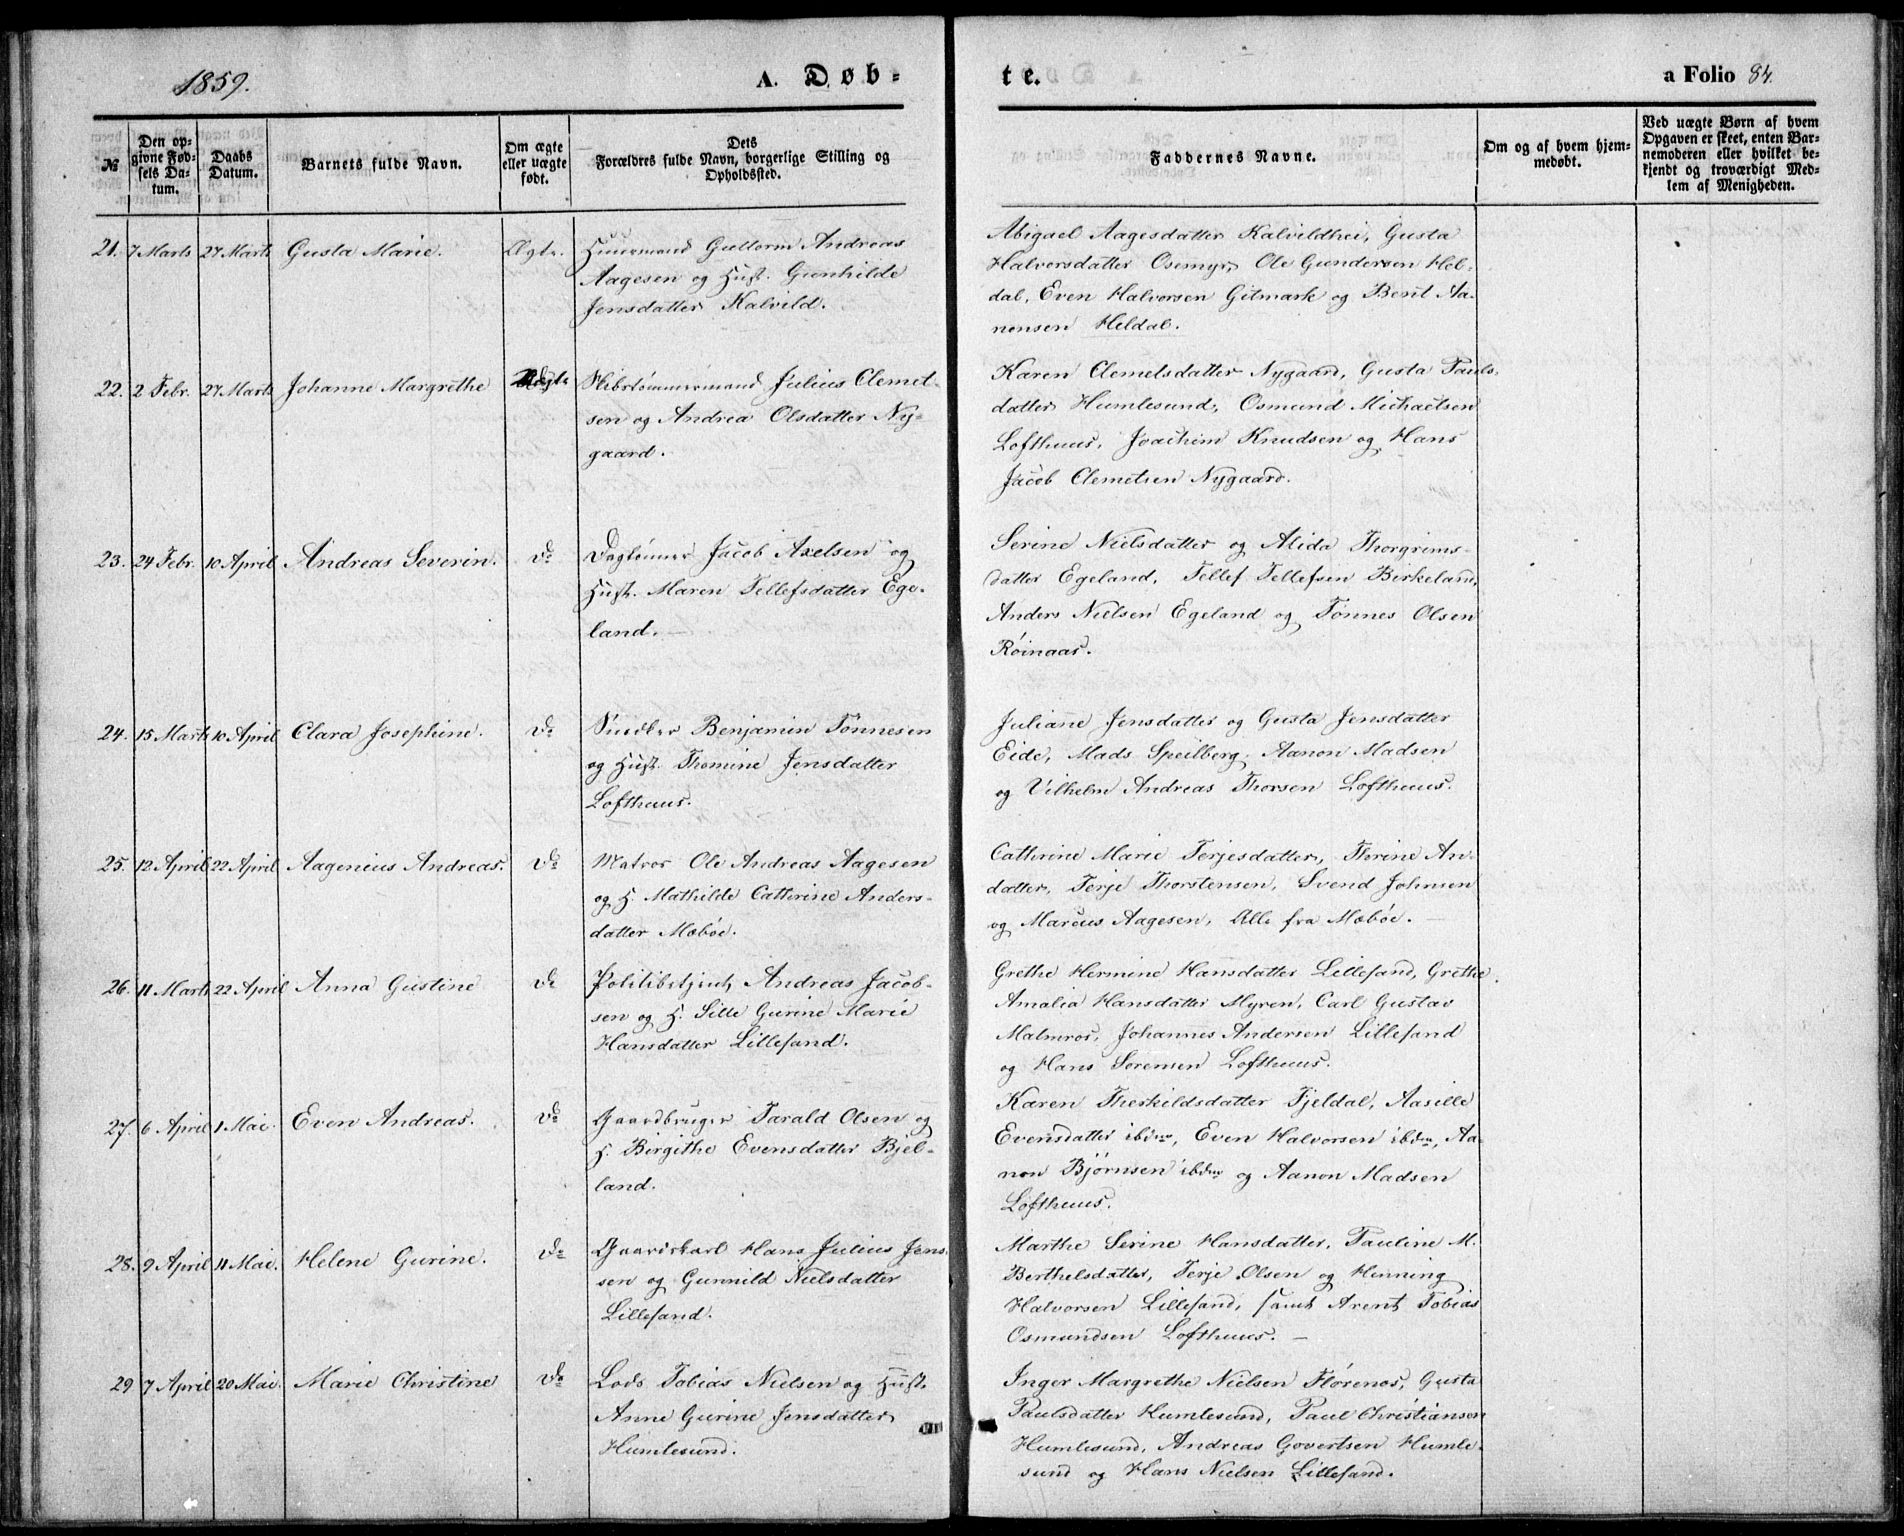 1859.
A. Døb-
te.
a Folio 84.
№
Den opgivne Fødsels Datum.
Daabs Datum.
Barnets fulde Navn.
Om ægte eller uægte født.
Dets Forældres fulde Navn, borgerlige Stilling og Opholdssted.
Faddernes Navne.
Om og af hvem hjemmedøbt.
Ved uægte Børn af hvem Opgaven er skeet, enten Barnemoderen eller hvilket bekjendt og troværdigt Medlem af Menigheden.
21. 7 Marts 27 Marts Gusta Marie. Ægte. Huusmand Guttorm Andreas
Aagesen og Hust. Gunhilde
Jensdatter Kalvild.
Abigael Aagesdatter Kalvildhei, Gusta
Halvorsdatter Osemyr, Ole Gundersen Hel-
dal, Even Halvorsen Gitmark og Berit Aa-
nonsen Heldal.
22. 2 Febr. 27 Marts Johanne Margrethe Skibstømmermand Julius Clemet-
sen og Andrea Olsdatter Ny-
gaard.
Karen Clemetsdatter Nygaard, Gusta Pauls-
datter Humlesund, Osmund Michaelsen
Lofthuus, Joachim Knudsen og Hans
Jacob Clemetsen Nygaard.
23. 24 Febr. 10 April Andreas Severin. Do Dagleinner Jacob Axelsen og
Hust. Maren Tellefsdatter Ege-
land.
Serine Nielsdatter og Alida Thorgrims-
datter Egeland, Tellef Tellefsen Birkeland,
Anders Nielsen Egeland og Tønnes Olsen
Røinaas.
24. 15 Marts 10 April Clara Josephine. Do Snedker Benjamin Tønnesen
og Hust. Thomine Jensdatter
Lofthuus.
Juliane Jensdatter og Gusta Jensdatter
Eide, Mads Speilberg, Aanon Madsen
og Vilhelm Andreas Thorsen Lofthuus.
25. 12 April 22 April Aagenius Andreas. Do Matros Ole Andreas Aagesen
og H. Mathilde Cathrine Anders-
datter Mæbøe.
Cathrine Marie Terjesdatter, Thrine An-
datter, Terje Thorstensen, Svend Johnsen
og Marcus Aagesen, Alle fra Mæbøe.
26. 11 Marts 22 April Anna Gustine Do Politibetjent Andreas Jacob-
sen og H. Sille Gurine Marie
Hansdatter Lillesand.
Grethe Hermine Hansdatter Lillesand, Grethe
Amalia Hansdatter Myren, Carl Gustav
Malmros, Johannes Andersen Lillesand
og Hans Sørensen Lofthuus.
27. 6 April 1 Mai. Even Andreas. Do Gaardbruger Tarald Olsen og
H. Birgithe Evensdatter Bjel-
land.
Karen Therkildsdatter Tjeldal, Aasille
Evensdatter ibdm, Even Halvorsen ibdm, Aa-
non Bjørnsen ibdm og Aanon Madsen
Lofthuus.
28. 9 April 11 Mai. Helene Gurine. Do Gaardskarl Hans Julius Jens
sen og Gunnild Nielsdatter
Lillesand.
Marthe Serine Hansdatter, Pauline M.
Berthelsdatter, Terje Olsen og Henning
Halvorsen Lillesand, samt Arent Tobias
Osmundsen Lofthuus.
29 7 April 20 Mai. Marie Christine Do Lods Tobias Nielsen og Hust.
Anne Gurine Jensdatter
Humlesund.
Inger Margrethe Nielsen Flørenes, Gusta
Paulsdatter Humlesund, Paul Christiansen
Humlesund, Andreas Govertsen Humle-
sund og Hans Nielsen Lillesand.